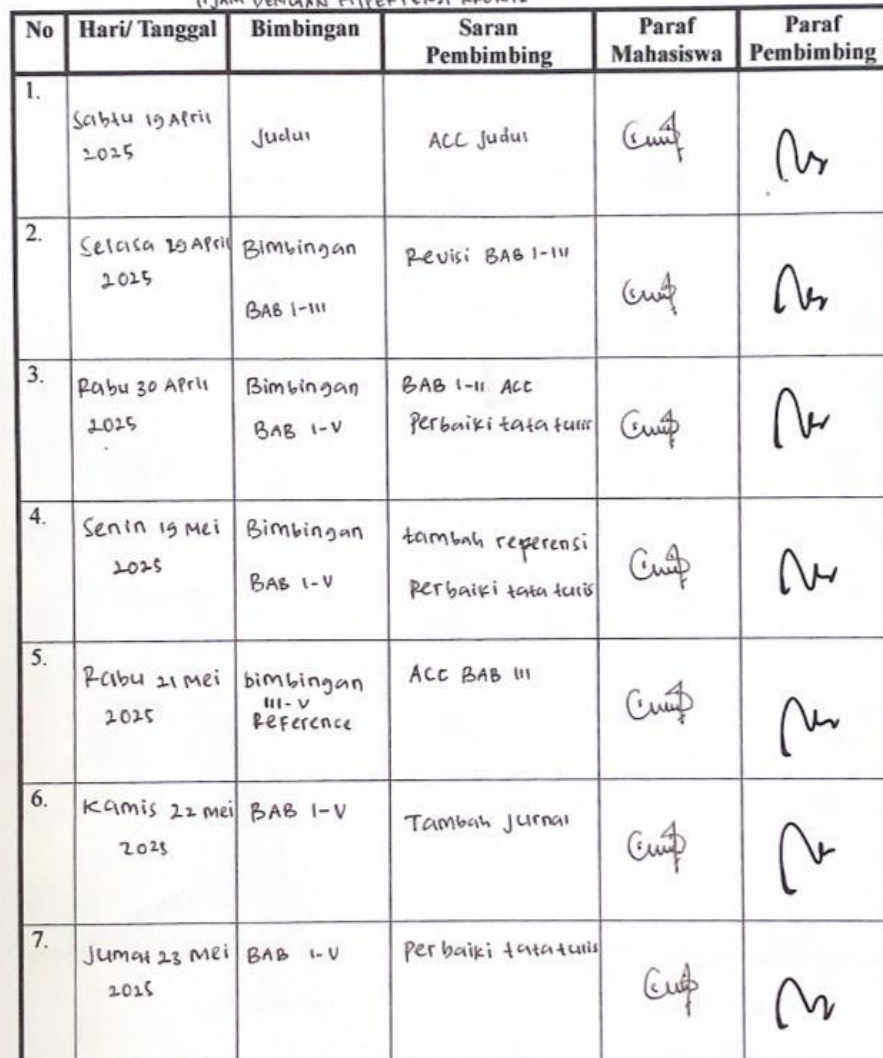 No Hari/ Tanggal Bimbingan Saran Pembimbing Paraf Mahasiswa Paraf Pembimbing
1.
Sabtu 19 April
2025
Judul
ACC Judul
2.
Selasa 29 April
2025
Bimbingan
BAB I-III
Revisi BAB I-III
3.
Rabu 30 April
2025
Bimbingan
BAB I-V
BAB I-II ACC
Perbaiki tata tulis
4.
Senin 19 Mei
2025
Bimbingan
BAB I-V
tambah referensi
Perbaiki tata tulis
5.
Rabu 21 Mei
2025
bimbingan
III-V
Reference
ACC BAB III
6.
Kamis 22 mei
2025
BAB I-V
Tambah Jurnal
7.
Jumat 23 Mei
2025
BAB I-V
Perbaiki tata tulis